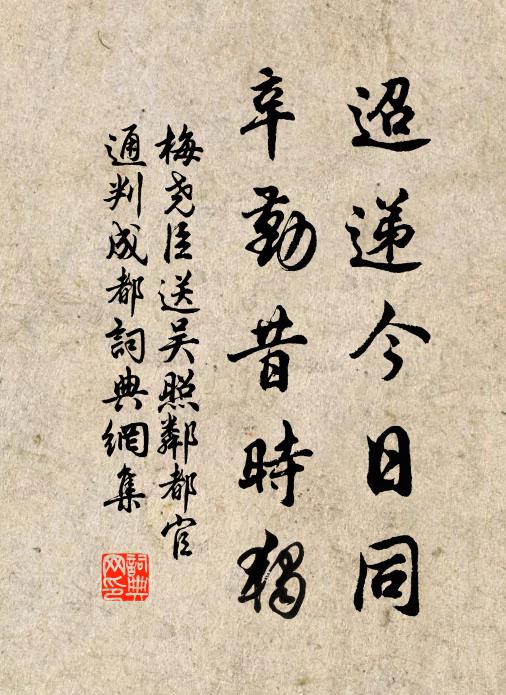 迢递今日同
辛勤昔時獨
梅堯臣送吴照鄰都官
通判成都詞典網集
詞典网印